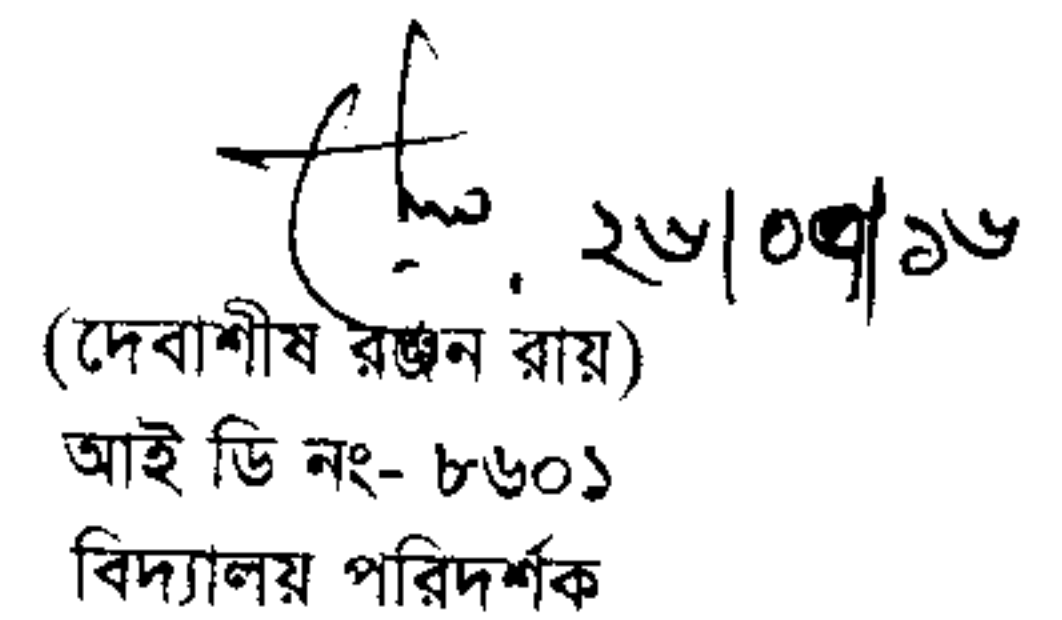 ২৬|০৭|১৬
(দেবাশীষ রঞ্জন রায়)
আই ডি নং- ৮৬০১
বিদ্যালয় পরিদর্শক